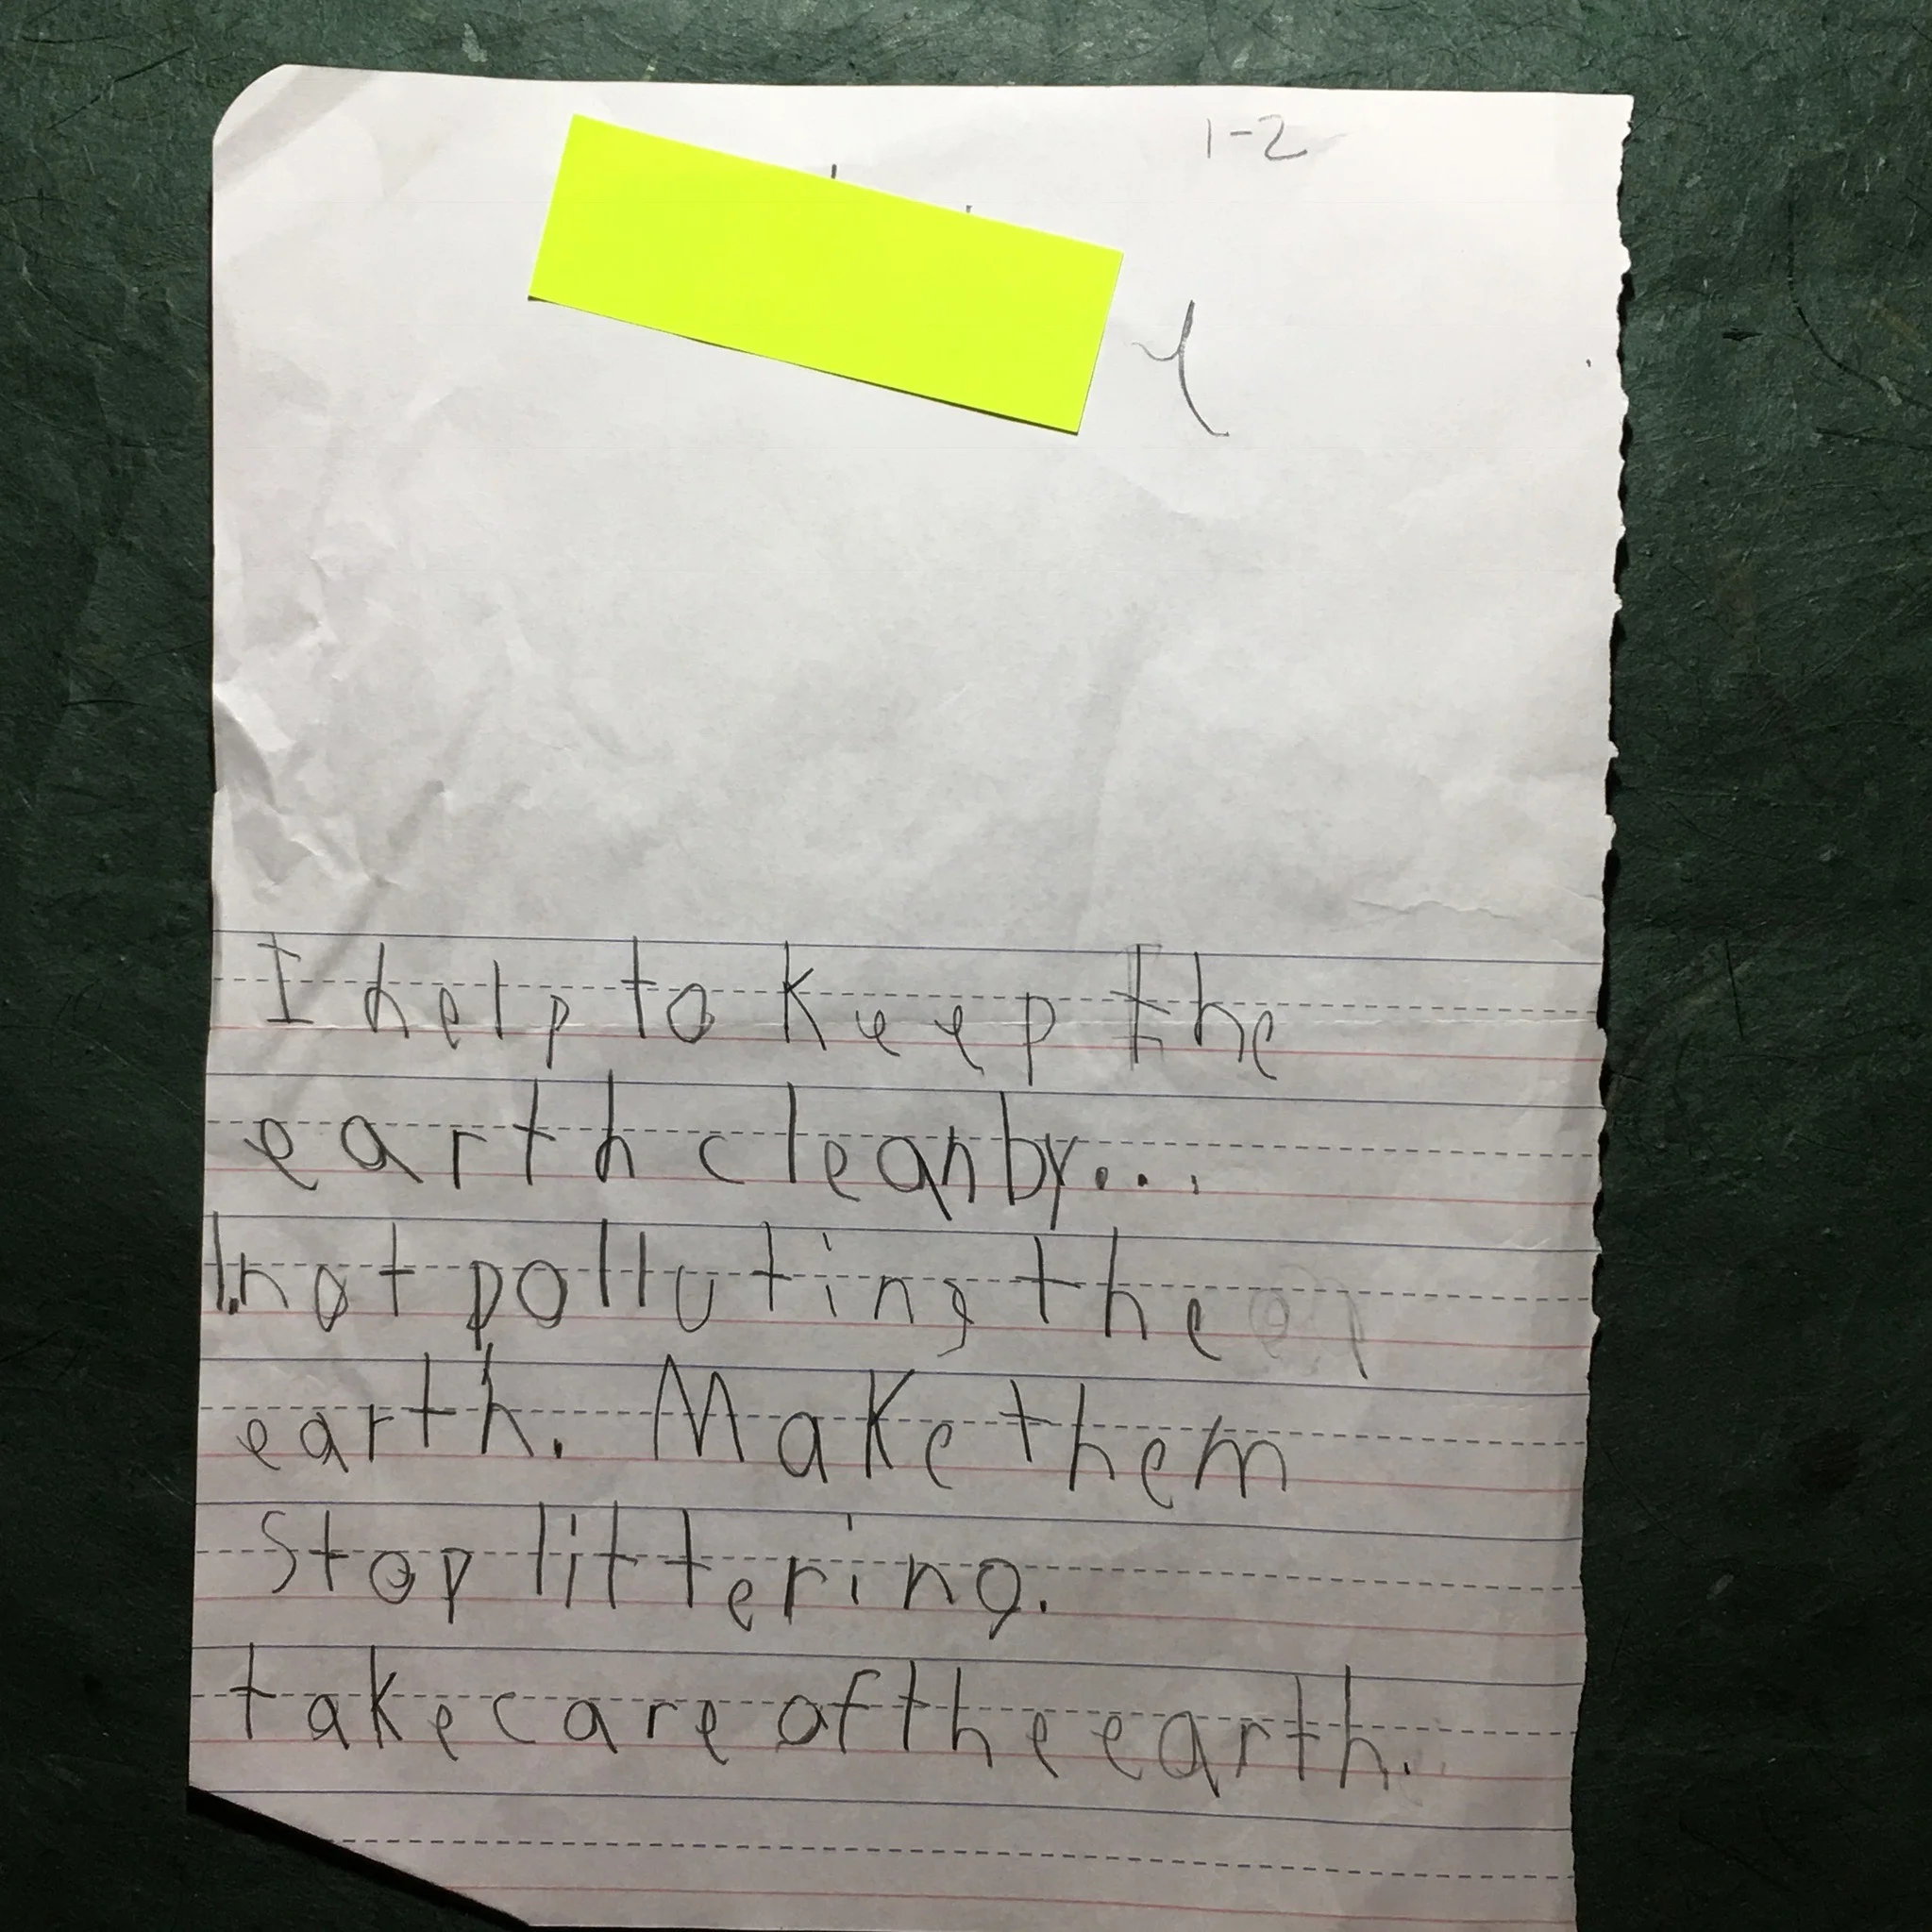 1-2
I help to keep the
earth clean by...
1. not polluting the
earth. Make them
Stop littering.
take care of the earth.